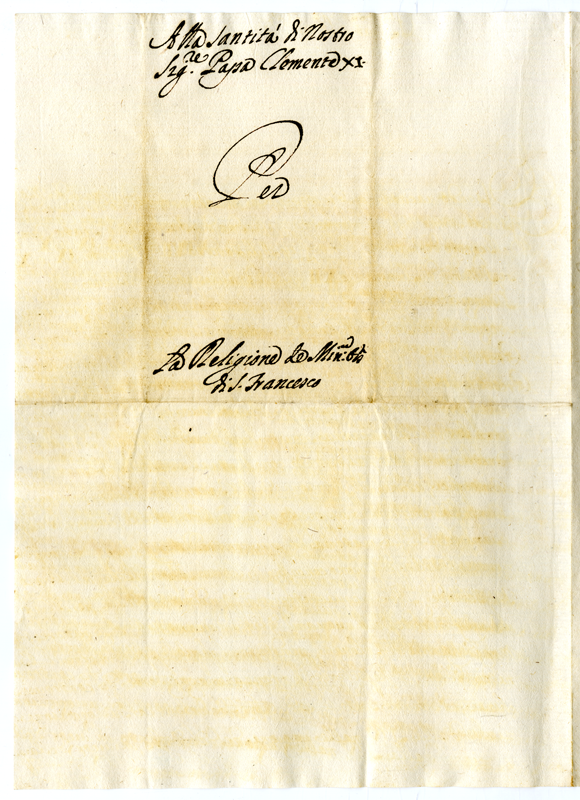 Alla Santità di Nostro
Sig.re Papa Clemente XI.
Per
La Religione de Min: Oss:ti
di S. Francesco